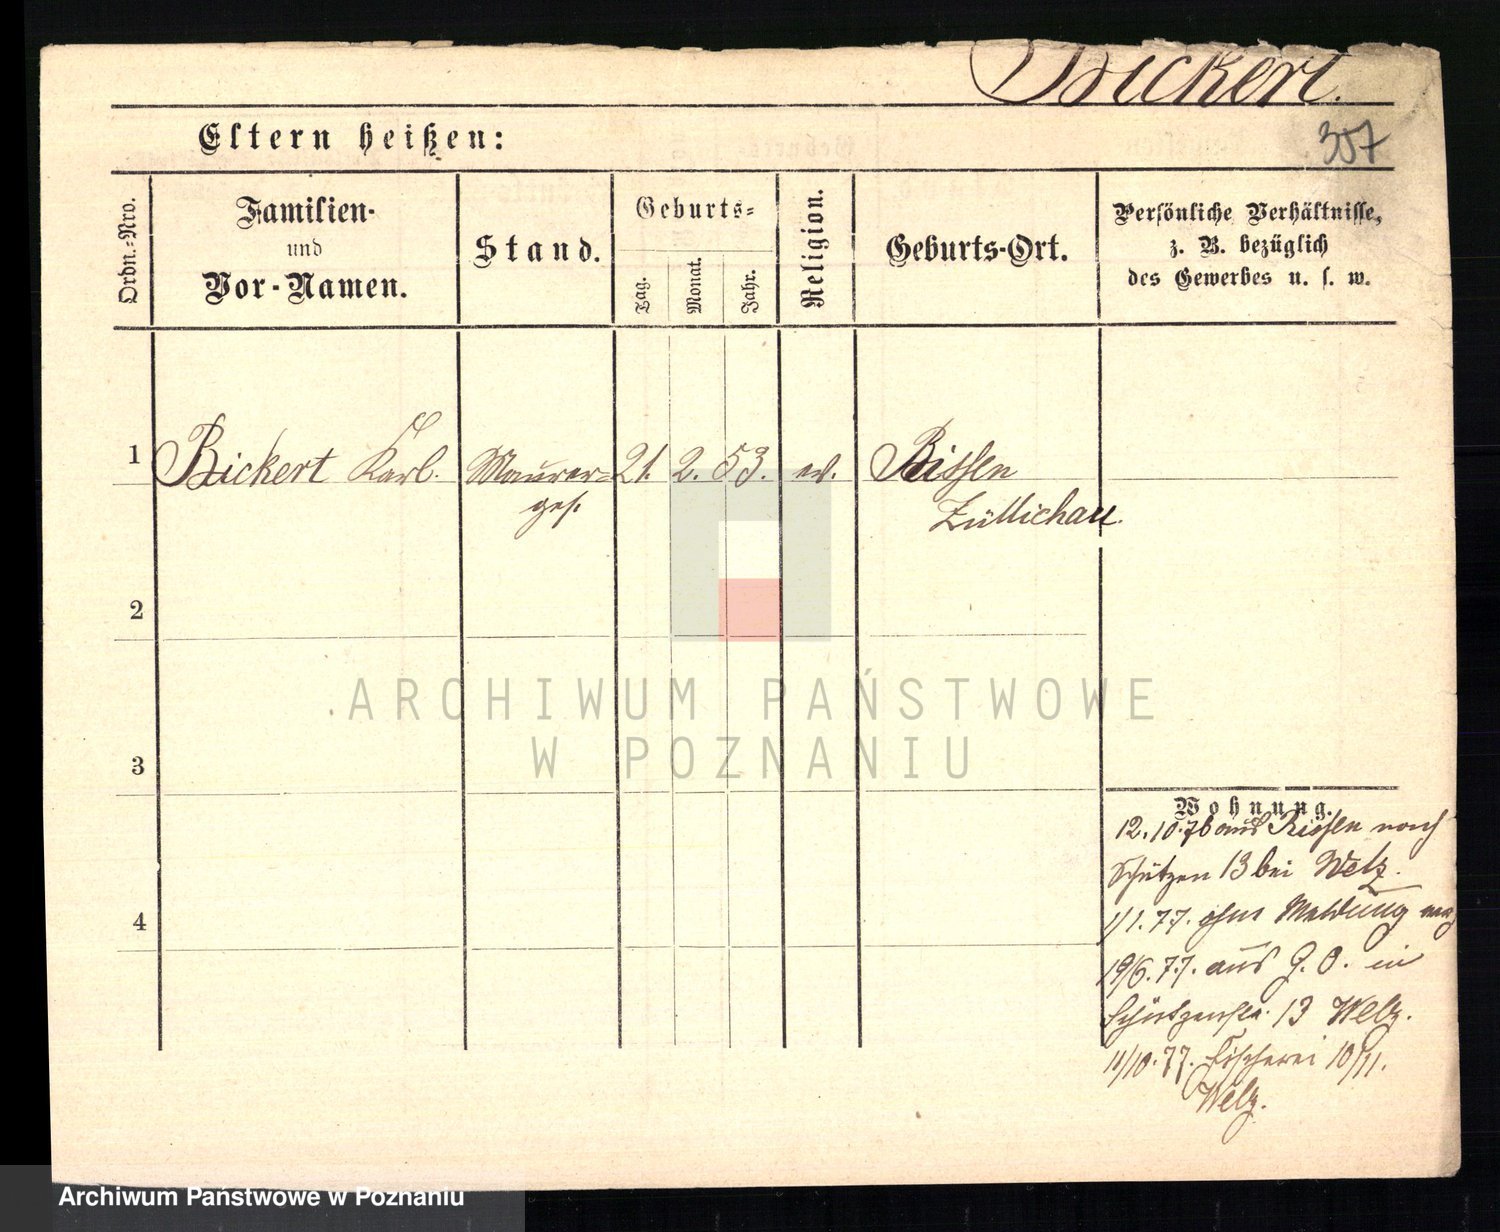 Bickert.
307
Eltern heißen:
Ordn.-Nro.
Familien-
und
Vor-Namen.
Stand.
Geburts-
Tag.
Monat.
Jahr.
Religion.
Geburts-Ort.
Persönliche Verhältnisse,
z. B. bezüglich
des Gewerbes u. s. w.
1
Bickert Karl.
Maurer-
ges.
21.
2.
53.
ev.
Rissen
Züllichau.
2
3
4
Wohnung.
12.10.76 aus Rissen nach
Schützen 13 bei Welz.
1/1.77. ohne Meldung
19/6.77. aus G. O. in
Schützenstr. 13 Welz.
11/10.77. Fischerei 10/11.
Welz.
ARCHIWUM PAŃSTWOWE
W POZNANIU
Archiwum Państwowe w Poznaniu